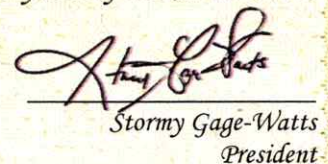 Stormy Gage-Watts
President